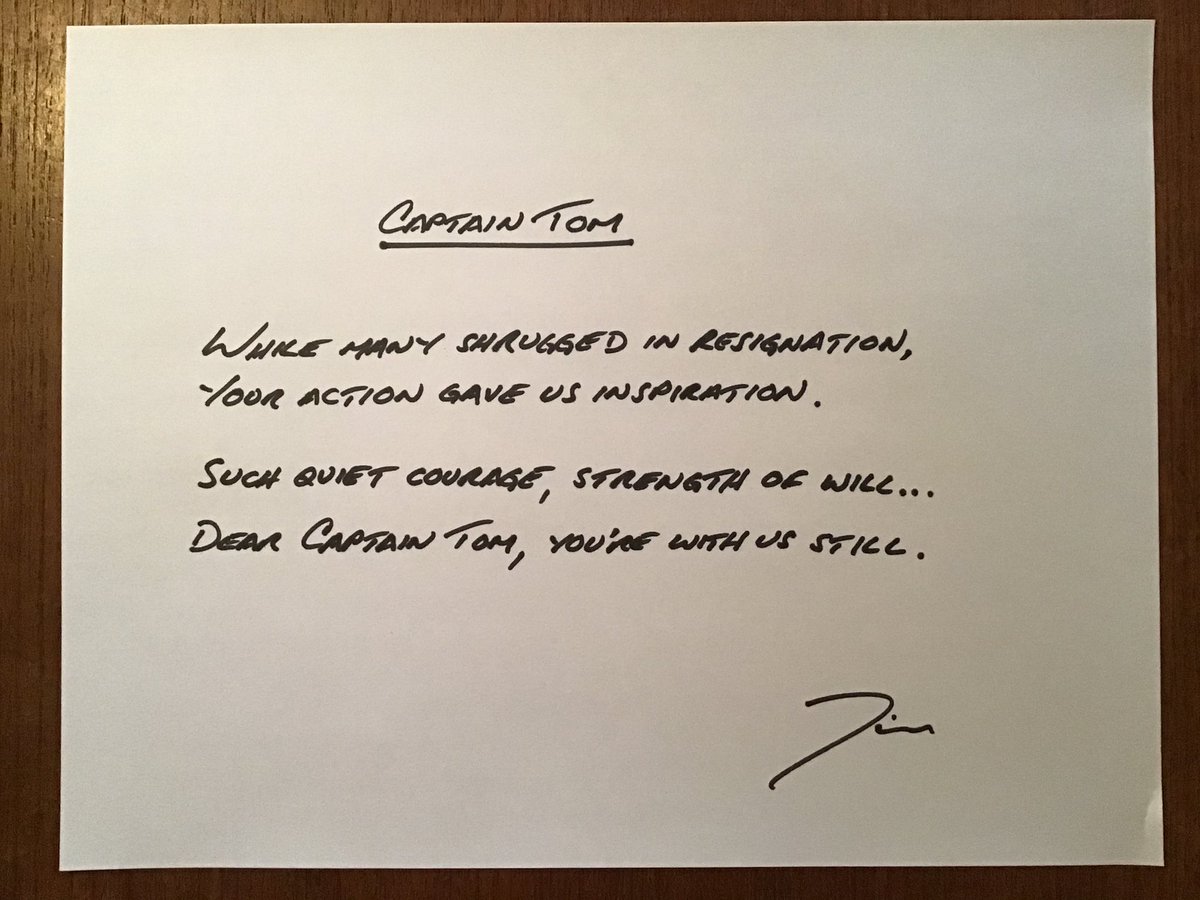 CAPTAIN TOM
WHILE MANY SHRUGGED IN RESIGNATION,
YOUR ACTION GAVE US INSPIRATION.
SUCH QUIET COURAGE, STRENGTH OF WILL...
DEAR CAPTAIN TOM, YOU'RE WITH US STILL.